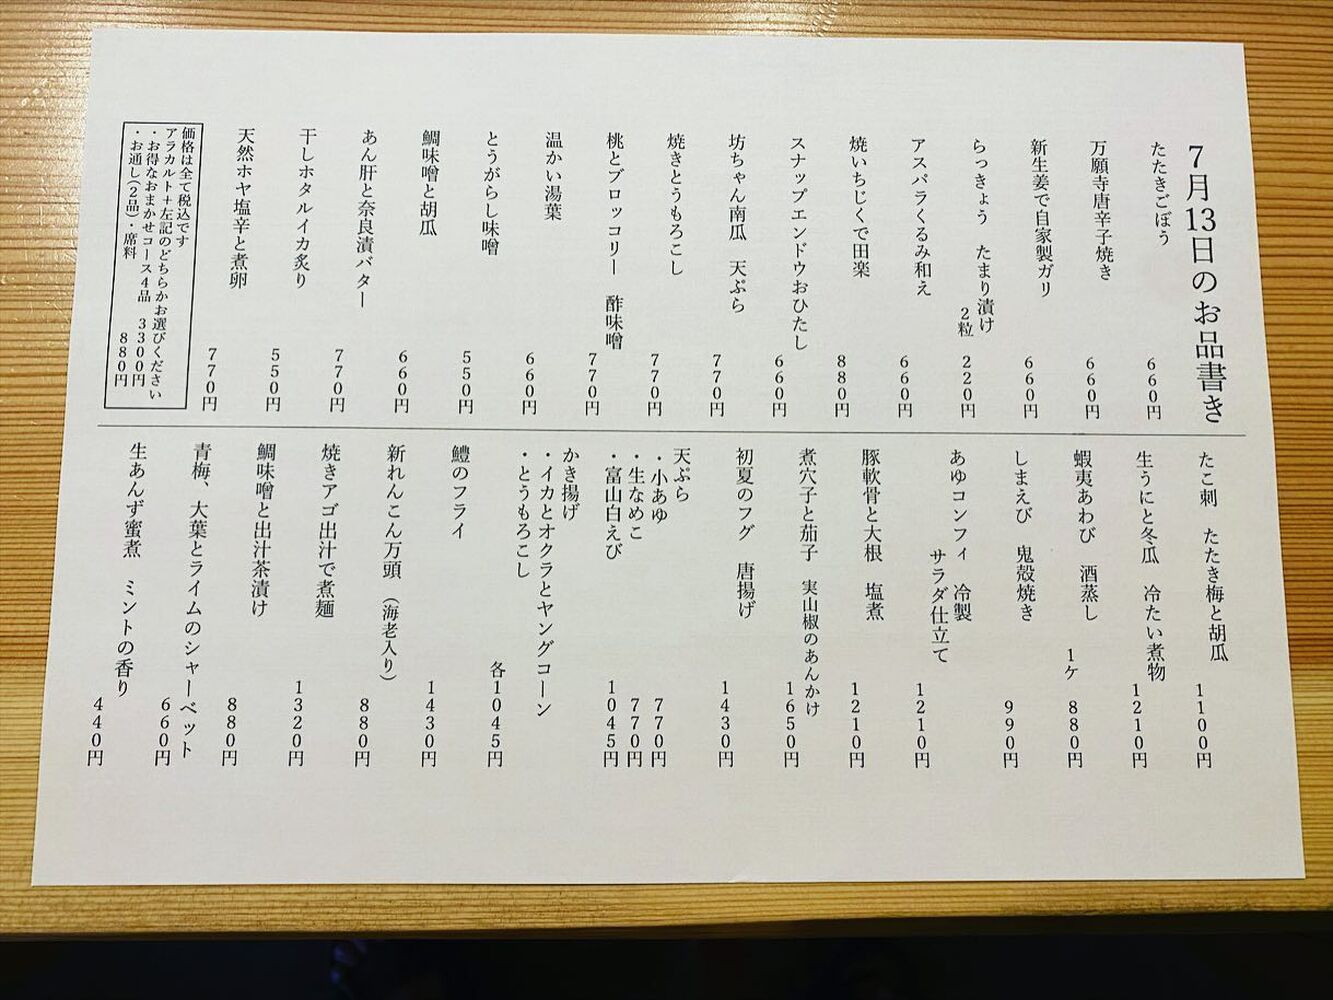 7月13日のお品書き
たたきごぼう 660円
万願寺唐辛子焼き 660円
新生姜で自家製ガリ 660円
らっきょう たまり漬け
2粒 220円
アスパラくるみ和え 660円
焼いちじくで田楽 880円
スナップエンドウおひたし 660円
坊ちゃん南瓜 天ぷら 770円
焼きとうもろこし 770円
桃とブロッコリー 酢味噌 770円
温かい湯葉 660円
とうがらし味噌 550円
鯛味噌と胡瓜 660円
あん肝と奈良漬バター 770円
干しホタルイカ炙り 550円
天然ホヤ塩辛と煮卵 770円
価格は全て税込です
アラカルト+左記のどちらかお選びください
・お得なおまかせコース4品 3300円
・お通し(2品)・席料 880円
たこ刺 たたき梅と胡瓜 1100円
生うにと冬瓜 冷たい煮物 1210円
蝦夷あわび 酒蒸し 1ケ 880円
しまえび 鬼殻焼き 990円
あゆコンフィ 冷製
サラダ仕立て 1210円
豚軟骨と大根 塩煮 1210円
煮穴子と茄子 実山椒のあんかけ 1650円
初夏のフグ 唐揚げ 1430円
天ぷら
・小あゆ 770円
・生なめこ 770円
・富山白えび 1045円
かき揚げ
・イカとオクラとヤングコーン
・とうもろこし 各1045円
鱧のフライ 1430円
新れんこん万頭(海老入り) 880円
焼きアゴ出汁で煮麺 1320円
鯛味噌と出汁茶漬け 880円
青梅、大葉とライムのシャーベット 660円
生あんず蜜煮 ミントの香り 440円